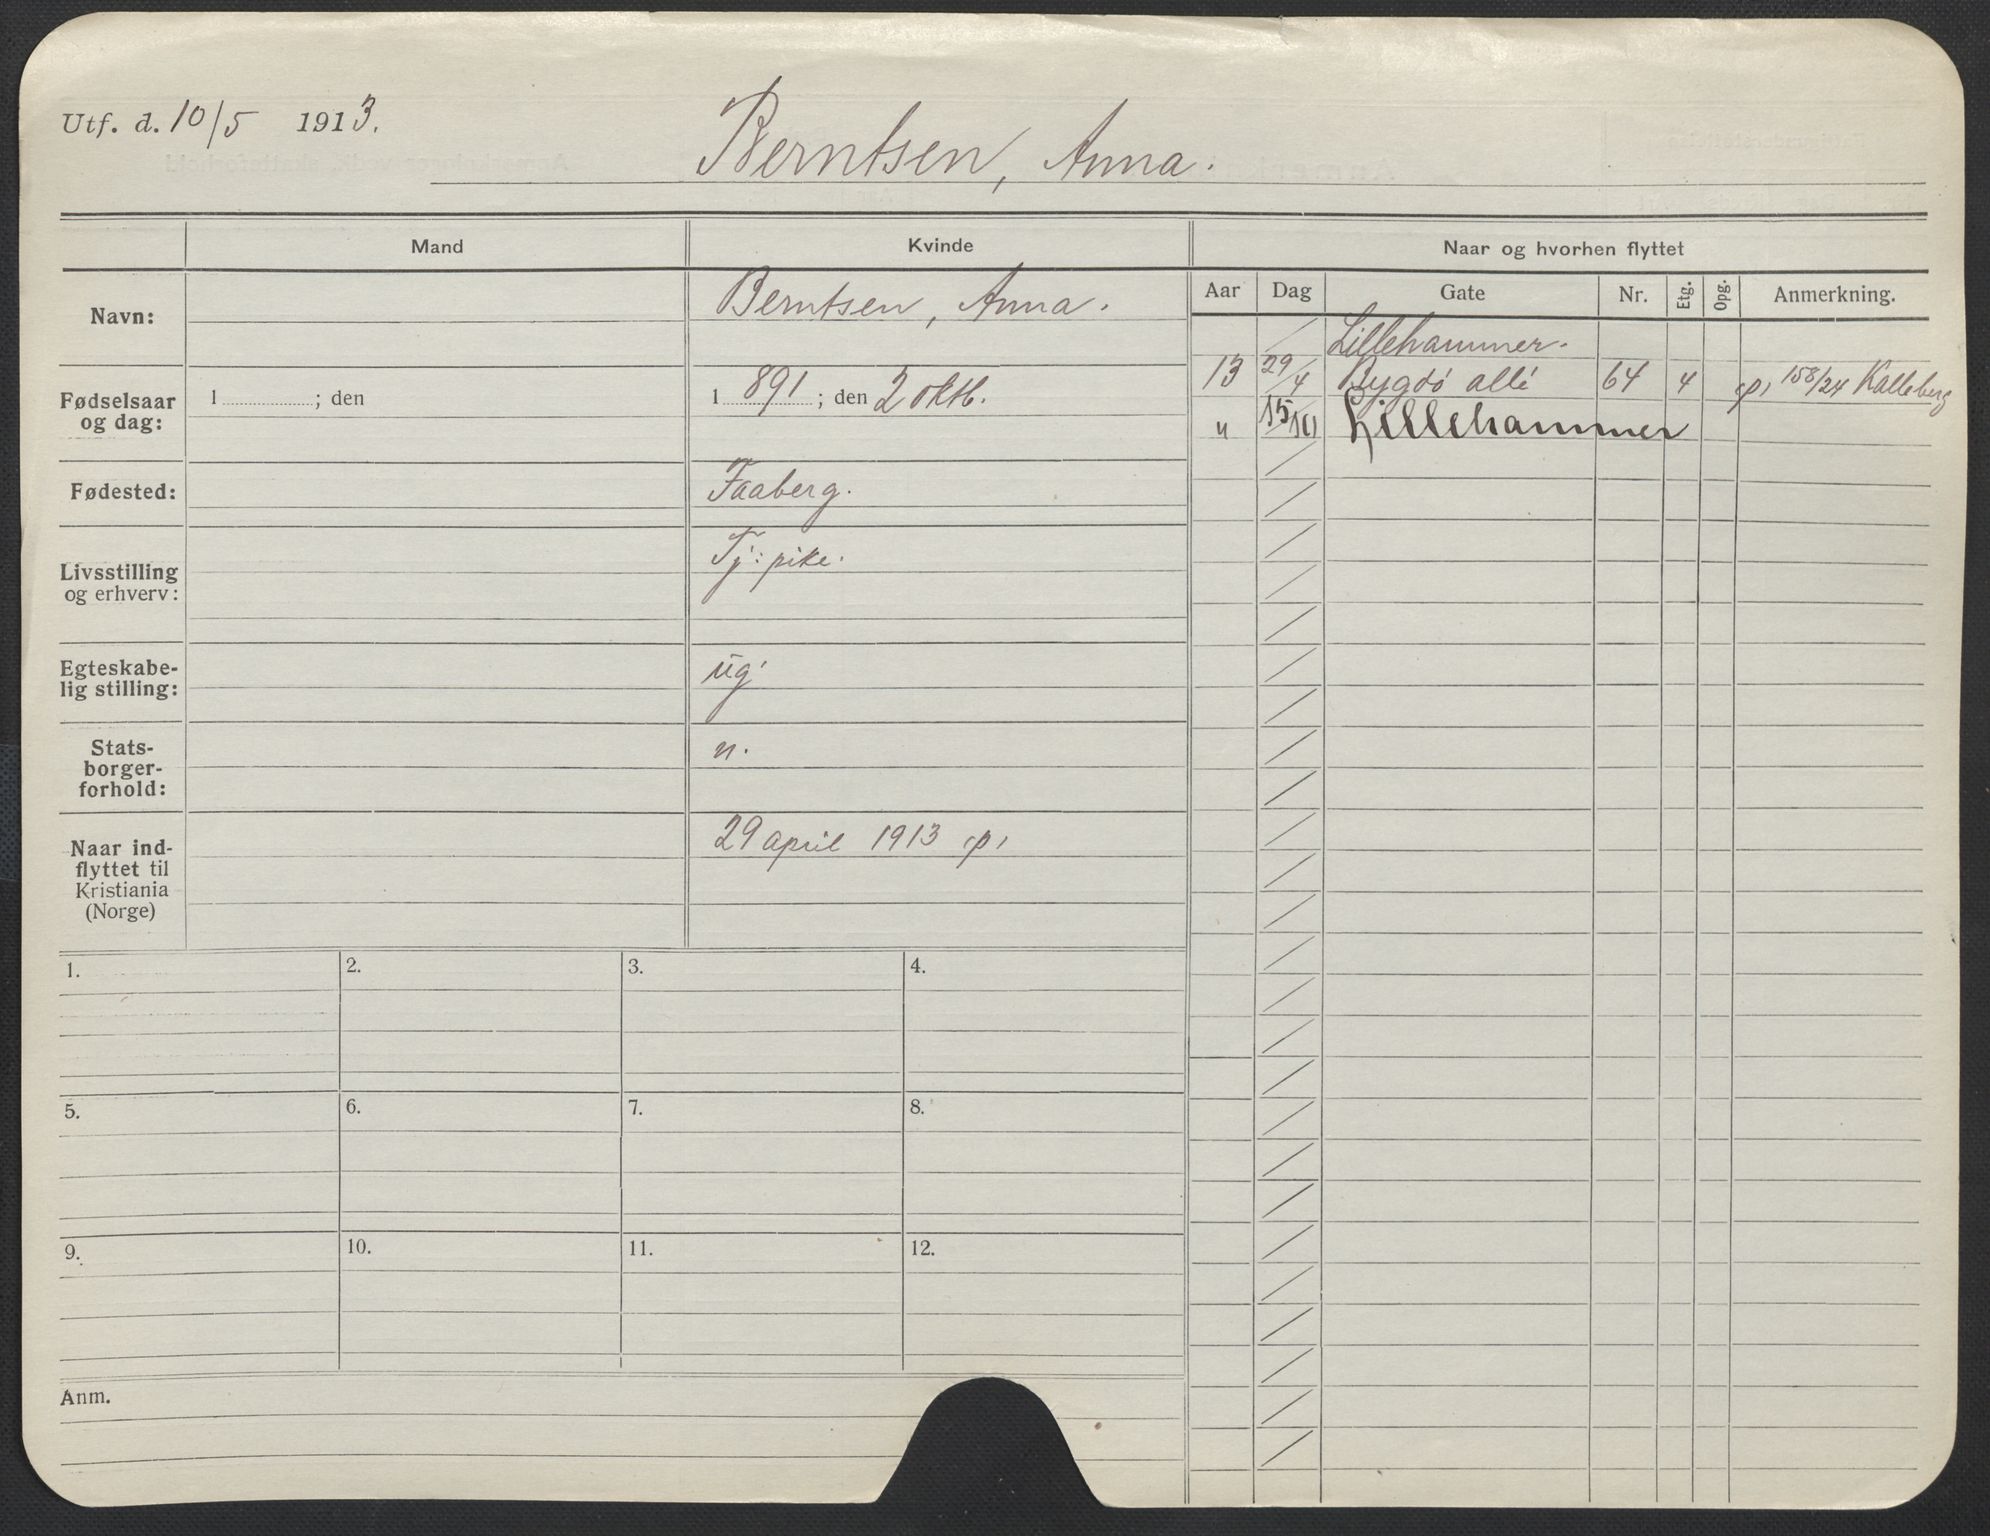 Utf. d. 10/5 1913.
Berntsen, Anna.
Mand
Kvinde
Naar og hvorhen flyttet
Navn:
Berntsen, Anna.
Aar Dag Gate Nr. Etg. Opg. Anmerkning.
Lillehammer.
Fødselsaar og dag:
1 ; den
1 891 ; den 2 oktb.
13 29/4 Bygdö allé 64 4 p, 158/24 Kalleberg
" 15/10 Lillehammer
Fødested:
Faaberg.
Livsstilling og erhverv:
Tj: pike.
Egteskabe-
lig stilling:
ug
Stats-
borger-
forhold:
n.
Naar ind-
flyttet til
Kristiania
(Norge)
29 april 1913 p,
1. 2. 3. 4.
5. 6. 7. 8.
9. 10. 11. 12.
Anm.